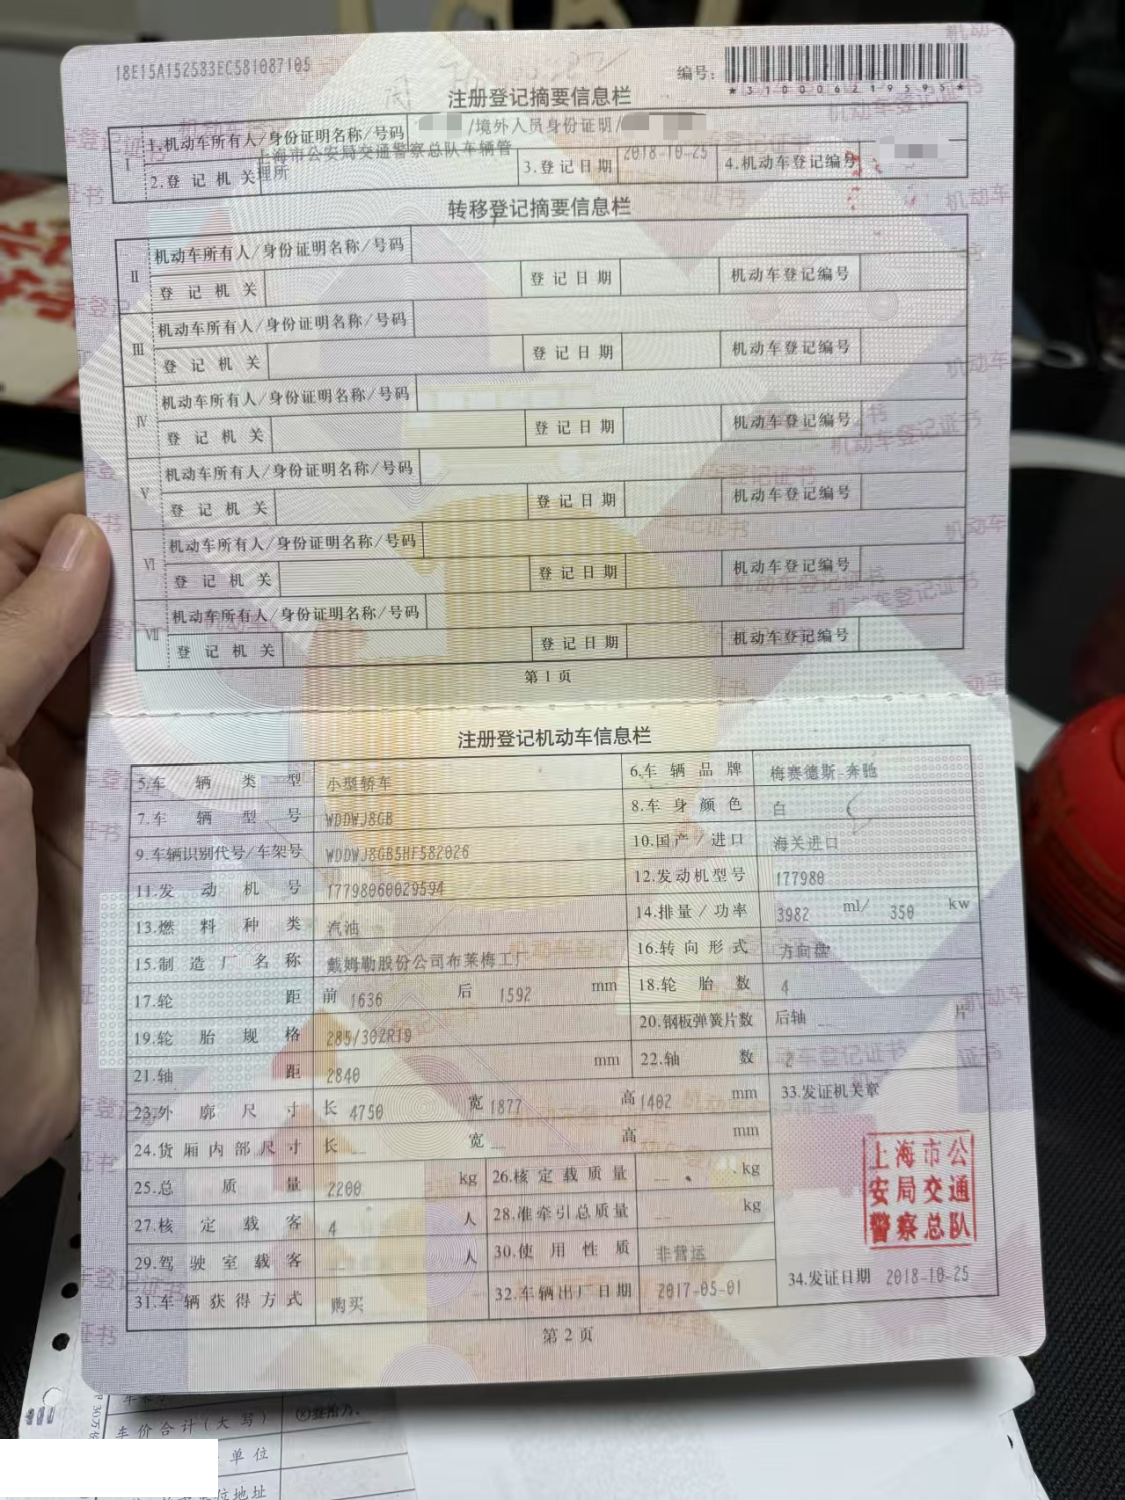 18E15A152583EC581087105
编号:
*310006219595*
注册登记摘要信息栏
I
1.机动车所有人/身份证明名称/号码 /境外人员身份证明/
2.登记机关 上海市公安局交通警察总队车辆管理所 3.登记日期 2018-10-25 4.机动车登记编号
转移登记摘要信息栏
II 机动车所有人/身份证明名称/号码
登记机关 登记日期 机动车登记编号
III 机动车所有人/身份证明名称/号码
登记机关 登记日期 机动车登记编号
IV 机动车所有人/身份证明名称/号码
登记机关 登记日期 机动车登记编号
V 机动车所有人/身份证明名称/号码
登记机关 登记日期 机动车登记编号
VI 机动车所有人/身份证明名称/号码
登记机关 登记日期 机动车登记编号
VII 机动车所有人/身份证明名称/号码
登记机关 登记日期 机动车登记编号
第1页
注册登记机动车信息栏
5.车辆类型 小型轿车 6.车辆品牌 梅赛德斯-奔驰
7.车辆型号 WDDWJ8GB 8.车身颜色 白
9.车辆识别代号/车架号 WDDWJ8GB5HF582026 10.国产/进口 海关进口
11.发动机号 17798060029594 12.发动机型号 177980
13.燃料种类 汽油 14.排量/功率 3982 ml/ 350 kw
15.制造厂名称 戴姆勒股份公司布莱梅工厂 16.转向形式 方向盘
17.轮距 前 1636 后 1592 mm 18.轮胎数 4
19.轮胎规格 285/302R19 20.钢板弹簧片数 后轴 __ 片
21.轴距 2840 mm 22.轴数 2
23.外廓尺寸 长 4750 宽 1877 高 1402 mm 33.发证机关章
24.货厢内部尺寸 长 __ 宽 __ 高 mm
25.总质量 2200 kg 26.核定载质量 __ kg
27.核定载客 4 人 28.准牵引总质量 __ kg
29.驾驶室载客 人 30.使用性质 非营运
31.车辆获得方式 购买 32.车辆出厂日期 2017-05-01
上海市公
安局交通
警察总队
34.发证日期 2018-10-25
第2页
车价合计(大写)
单位
地址